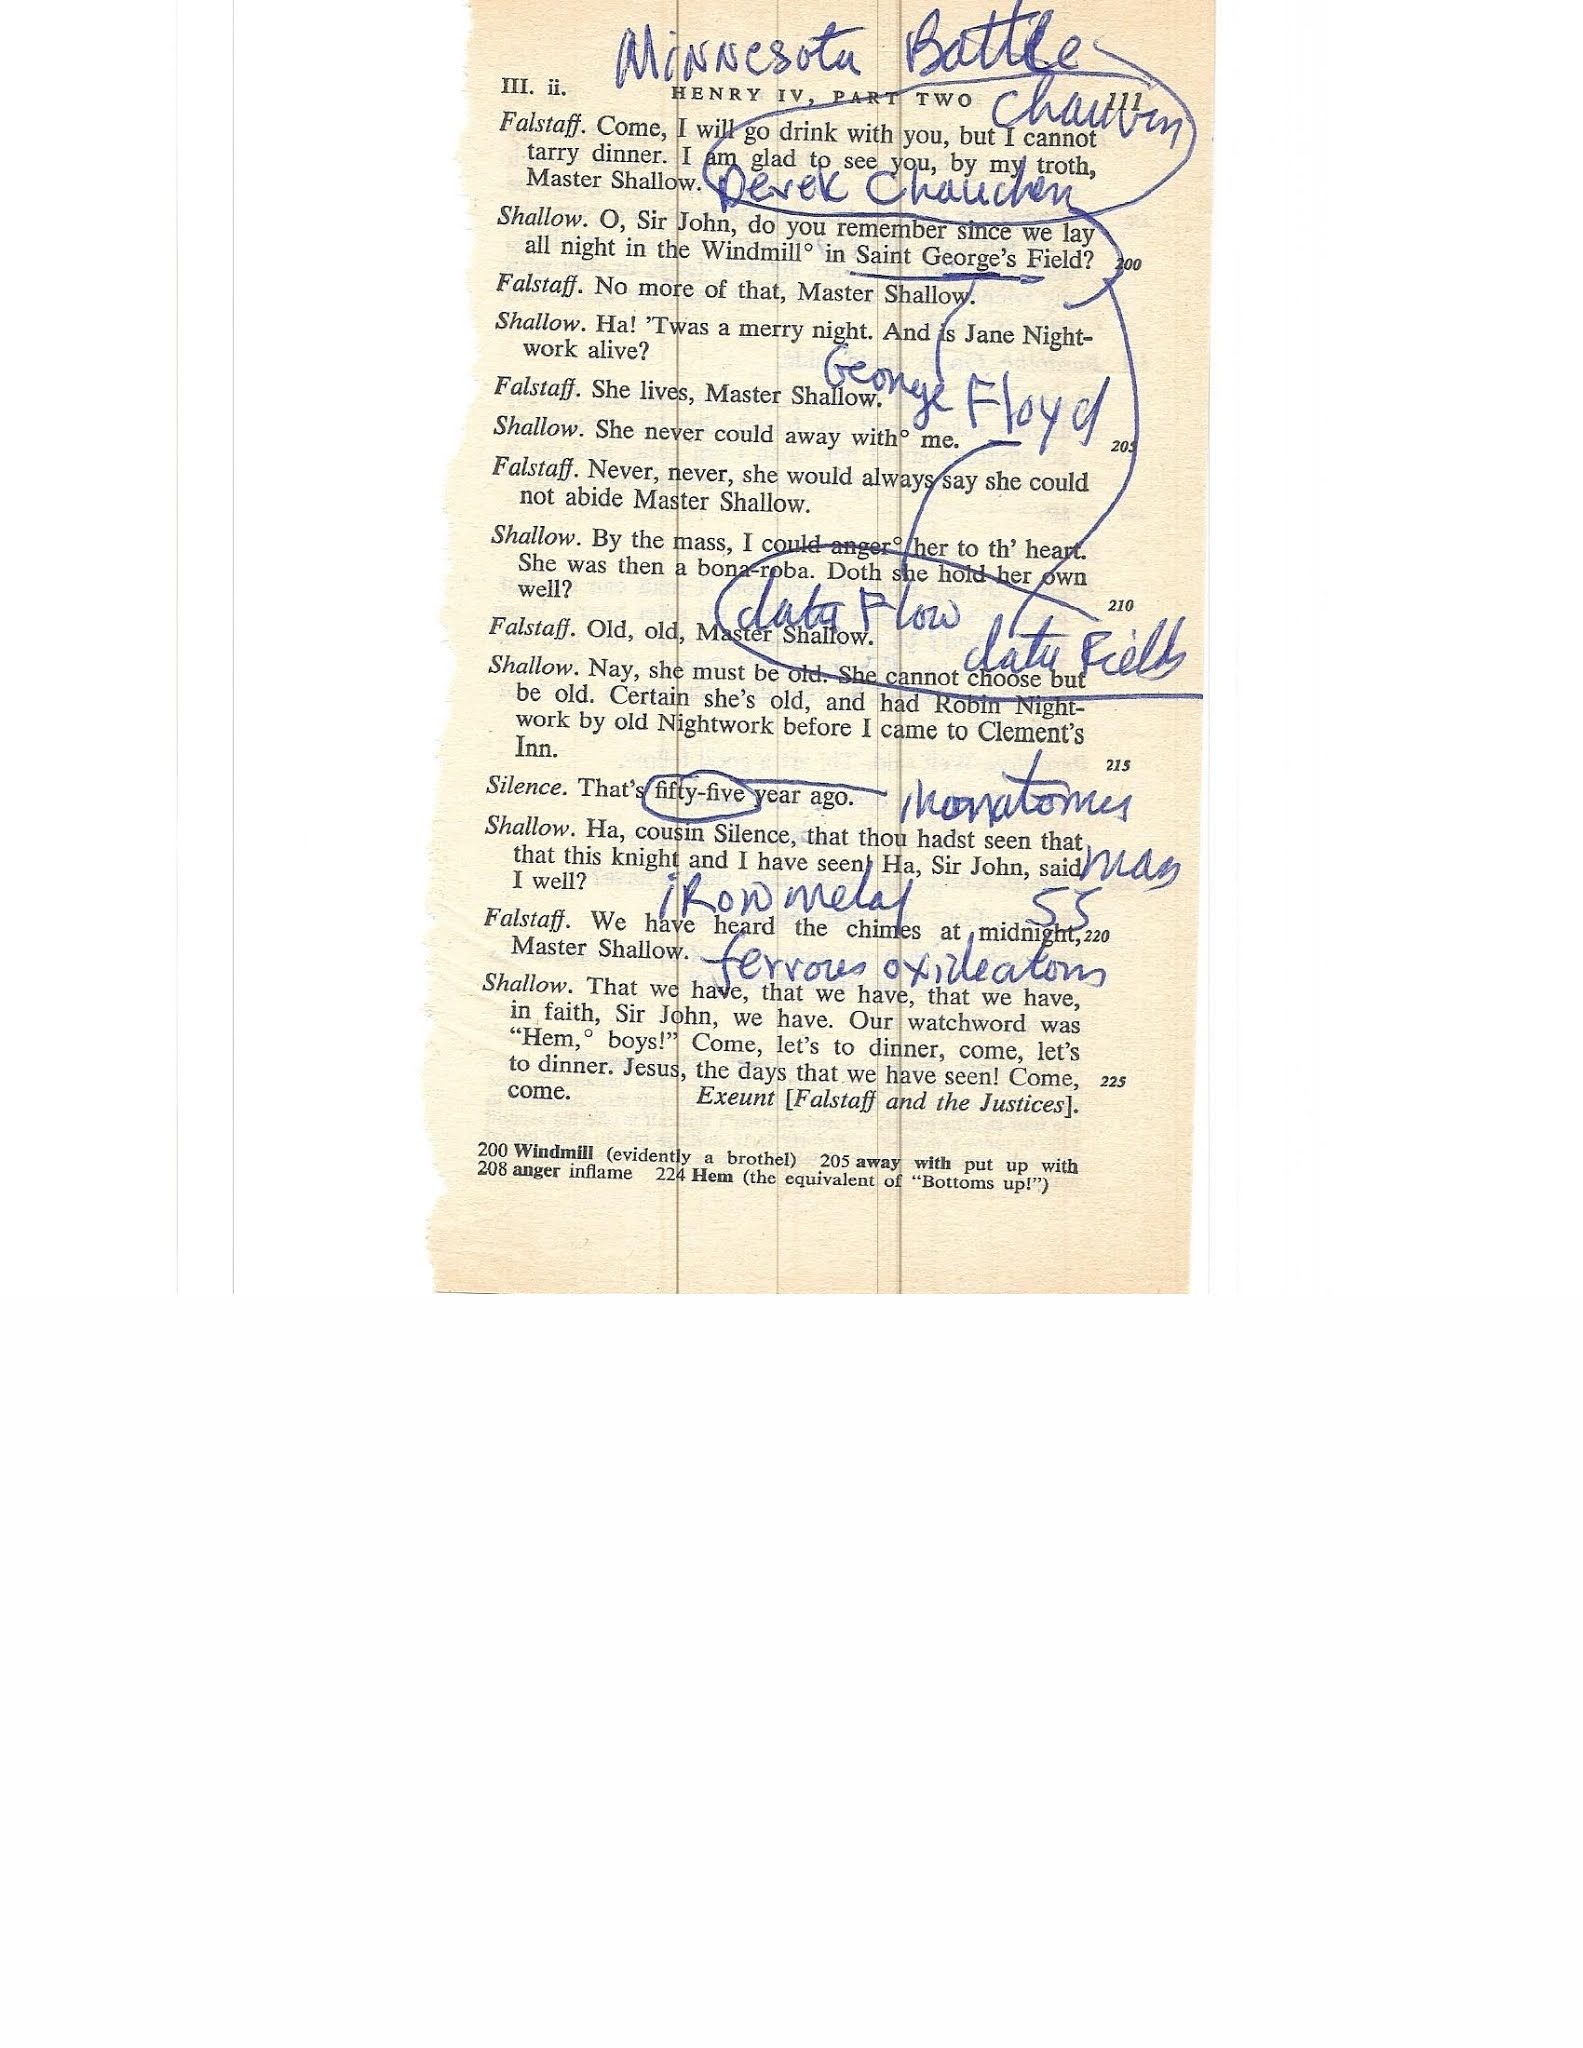 Minnesota Battle
III. ii. HENRY IV, PART TWO 111
Chauvin
Falstaff. Come, I will go drink with you, but I cannot
tarry dinner. I am glad to see you, by my troth,
Master Shallow.
Derek
Shallow. O, Sir John, do you remember since we lay
all night in the Windmill° in Saint George's Field? 200
Falstaff. No more of that, Master Shallow.
Shallow. Ha! 'Twas a merry night. And is Jane Night-
work alive?
George Floyd
Falstaff. She lives, Master Shallow.
Shallow. She never could away with° me. 205
Falstaff. Never, never, she would always say she could
not abide Master Shallow.
Shallow. By the mass, I could anger° her to th' heart.
She was then a bona-roba. Doth she hold her own
well? 210
data Flow
Falstaff. Old, old, Master Shallow.
data Fields
Shallow. Nay, she must be old. She cannot choose but
be old. Certain she's old, and had Robin Night-
work by old Nightwork before I came to Clement's
Inn. 215
Silence. That's fifty-five year ago.
Shallow. Ha, cousin Silence, that thou hadst seen that
that this knight and I have seen! Ha, Sir John, said
I well?
iRon metal 55
Falstaff. We have heard the chimes at midnight, 220
Master Shallow.
ferrous oxide atoms
Shallow. That we have, that we have, that we have,
in faith, Sir John, we have. Our watchword was
“Hem,° boys!” Come, let's to dinner, come, let's
to dinner. Jesus, the days that we have seen! Come, 225
come. Exeunt [Falstaff and the Justices].
200 Windmill (evidently a brothel) 205 away with put up with
208 anger inflame 224 Hem (the equivalent of “Bottoms up!”)